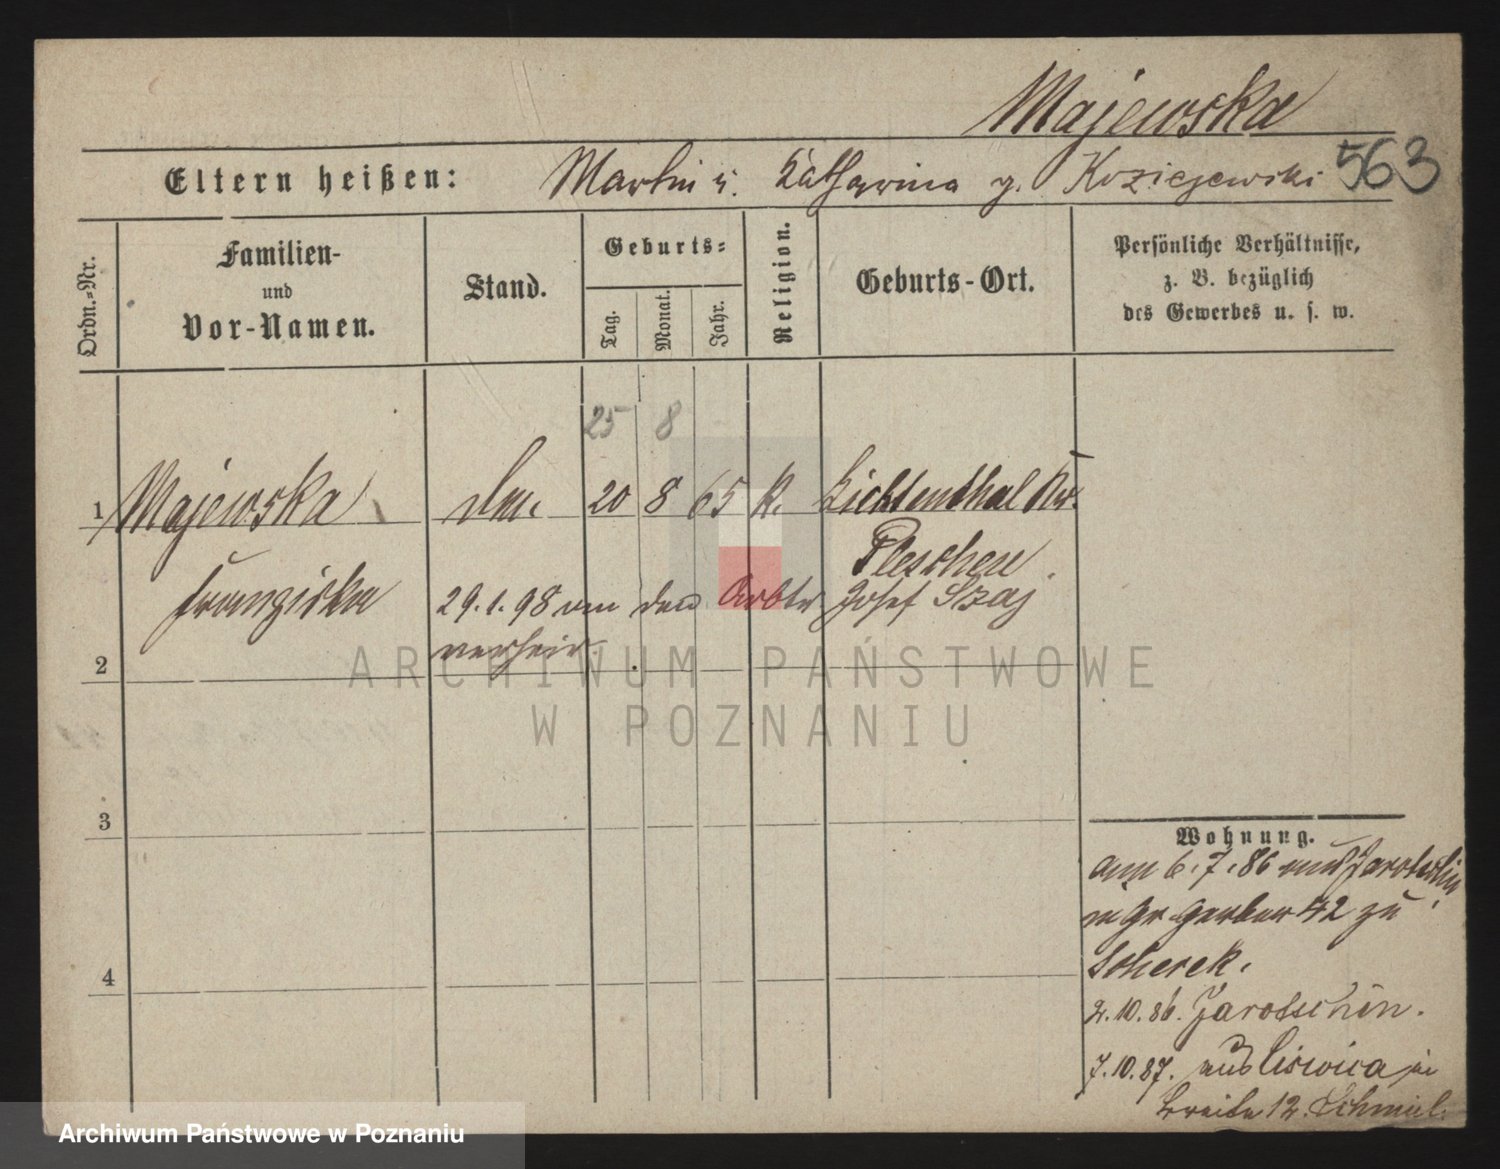 Majewska
563
Eltern heißen: Martin u. Katharina g. Koziejewski
Ordn.-Nr.
Familien-
und
Vor-Namen.
Stand.
Geburts-
Tag.
Monat.
Jahr.
Religion.
Geburts-Ort.
Persönliche Verhältnisse,
z. B. bezüglich
des Gewerbes u. s. w.
25 8
1 Majewska 20 8 65 K. Lichtenthal Kr.
Pleschen
Franziska
29.1.98 den Arbtr Josef Szaj
verheir.
2
3
4
Wohnung.
am 6.7.86 aus Jarotschin
n Gr Gerber 42 zu
Scherek.
2.10.86. Jarotschin.
7.10.87. aus in
Breite 12.
ARCHIWUM PAŃSTWOWE
W POZNANIU
Archiwum Państwowe w Poznaniu